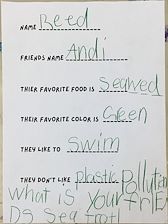 NAME Reed
FRIENDS NAME Andi
THIER FAVORITE FOOD IS Seawed
THEIR FAVORITE COLOR IS Green
THEY LIKE TO Swim
THEY DON'T LIKE plastic Pollution
What is Your frI
DS Sea